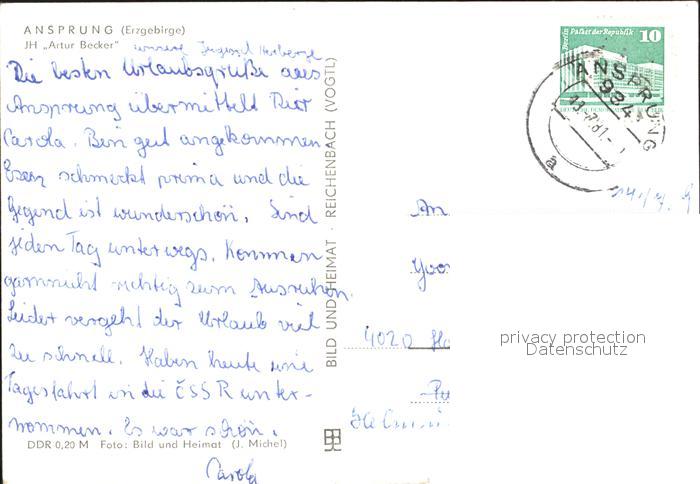 ANSPRUNG (Erzgebirge)
JH „Artur Becker" unsere Jugend Herberge
Die besten Urlaubsgrüße aus
Ansprung übermittelt Dir
Carola. Bin gut angekommen.
Essen schmeckt prima und die
Gegend ist wunderschön. Sind
jeden Tag unterwegs. Kommen
garnicht richtig zum Ausruhen.
Leider vergeht der Urlaub viel
zu schnell. Haben heute eine
Tagesfahrt in die ČSSR unter-
nommen. Es war schön.
Carola
DDR 0,20 M Foto: Bild und Heimat (J. Michel)
BILD UND HEIMAT · REICHENBACH (VOGTL)
Berlin Palast der Republik 10
ANSPRUNG
9341
a
An
4020 Ha
privacy protection
Datenschutz